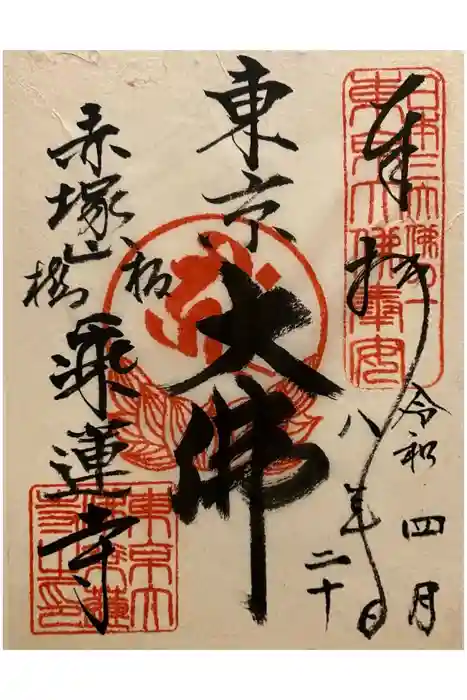 奉拝
東京大佛奉安
令和八年
四月二十八日
東京
大佛
板橋
赤塚山乗蓮寺
東京大
佛乗蓮
寺之印